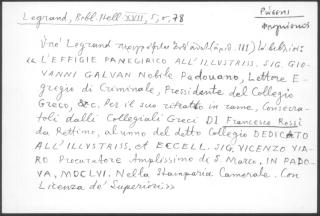 Legrand, Bibl. Hell. XVII, 5, σ. 78
Ὑπὸ Legrand περιγράφεται (ἀριθ. 181)
« L'EFFIGIE PANEGIRICO ALL'ILLUSTRISS. SIG. GIO-
VANNI GALVAN Nobile Padouano, Lettore E-
gregio di Criminale, Presidente del Collegio
Greco, &c. Per il suo ritratto in rame, Consecra-
toli dalli Collegiali Greci DI Francesco Rossi
da Rettimo, alunno del detto Collegio DEDICATO
ALL'ILLUSTRISS. et ECCELL. SIG. VICENZO VIA-
RO Procuratore Amplissimo di S. Marco. IN PADO-
VA, MDCLVI. Nella Stamparia Camerale. Con
Licenza de' Superiori »